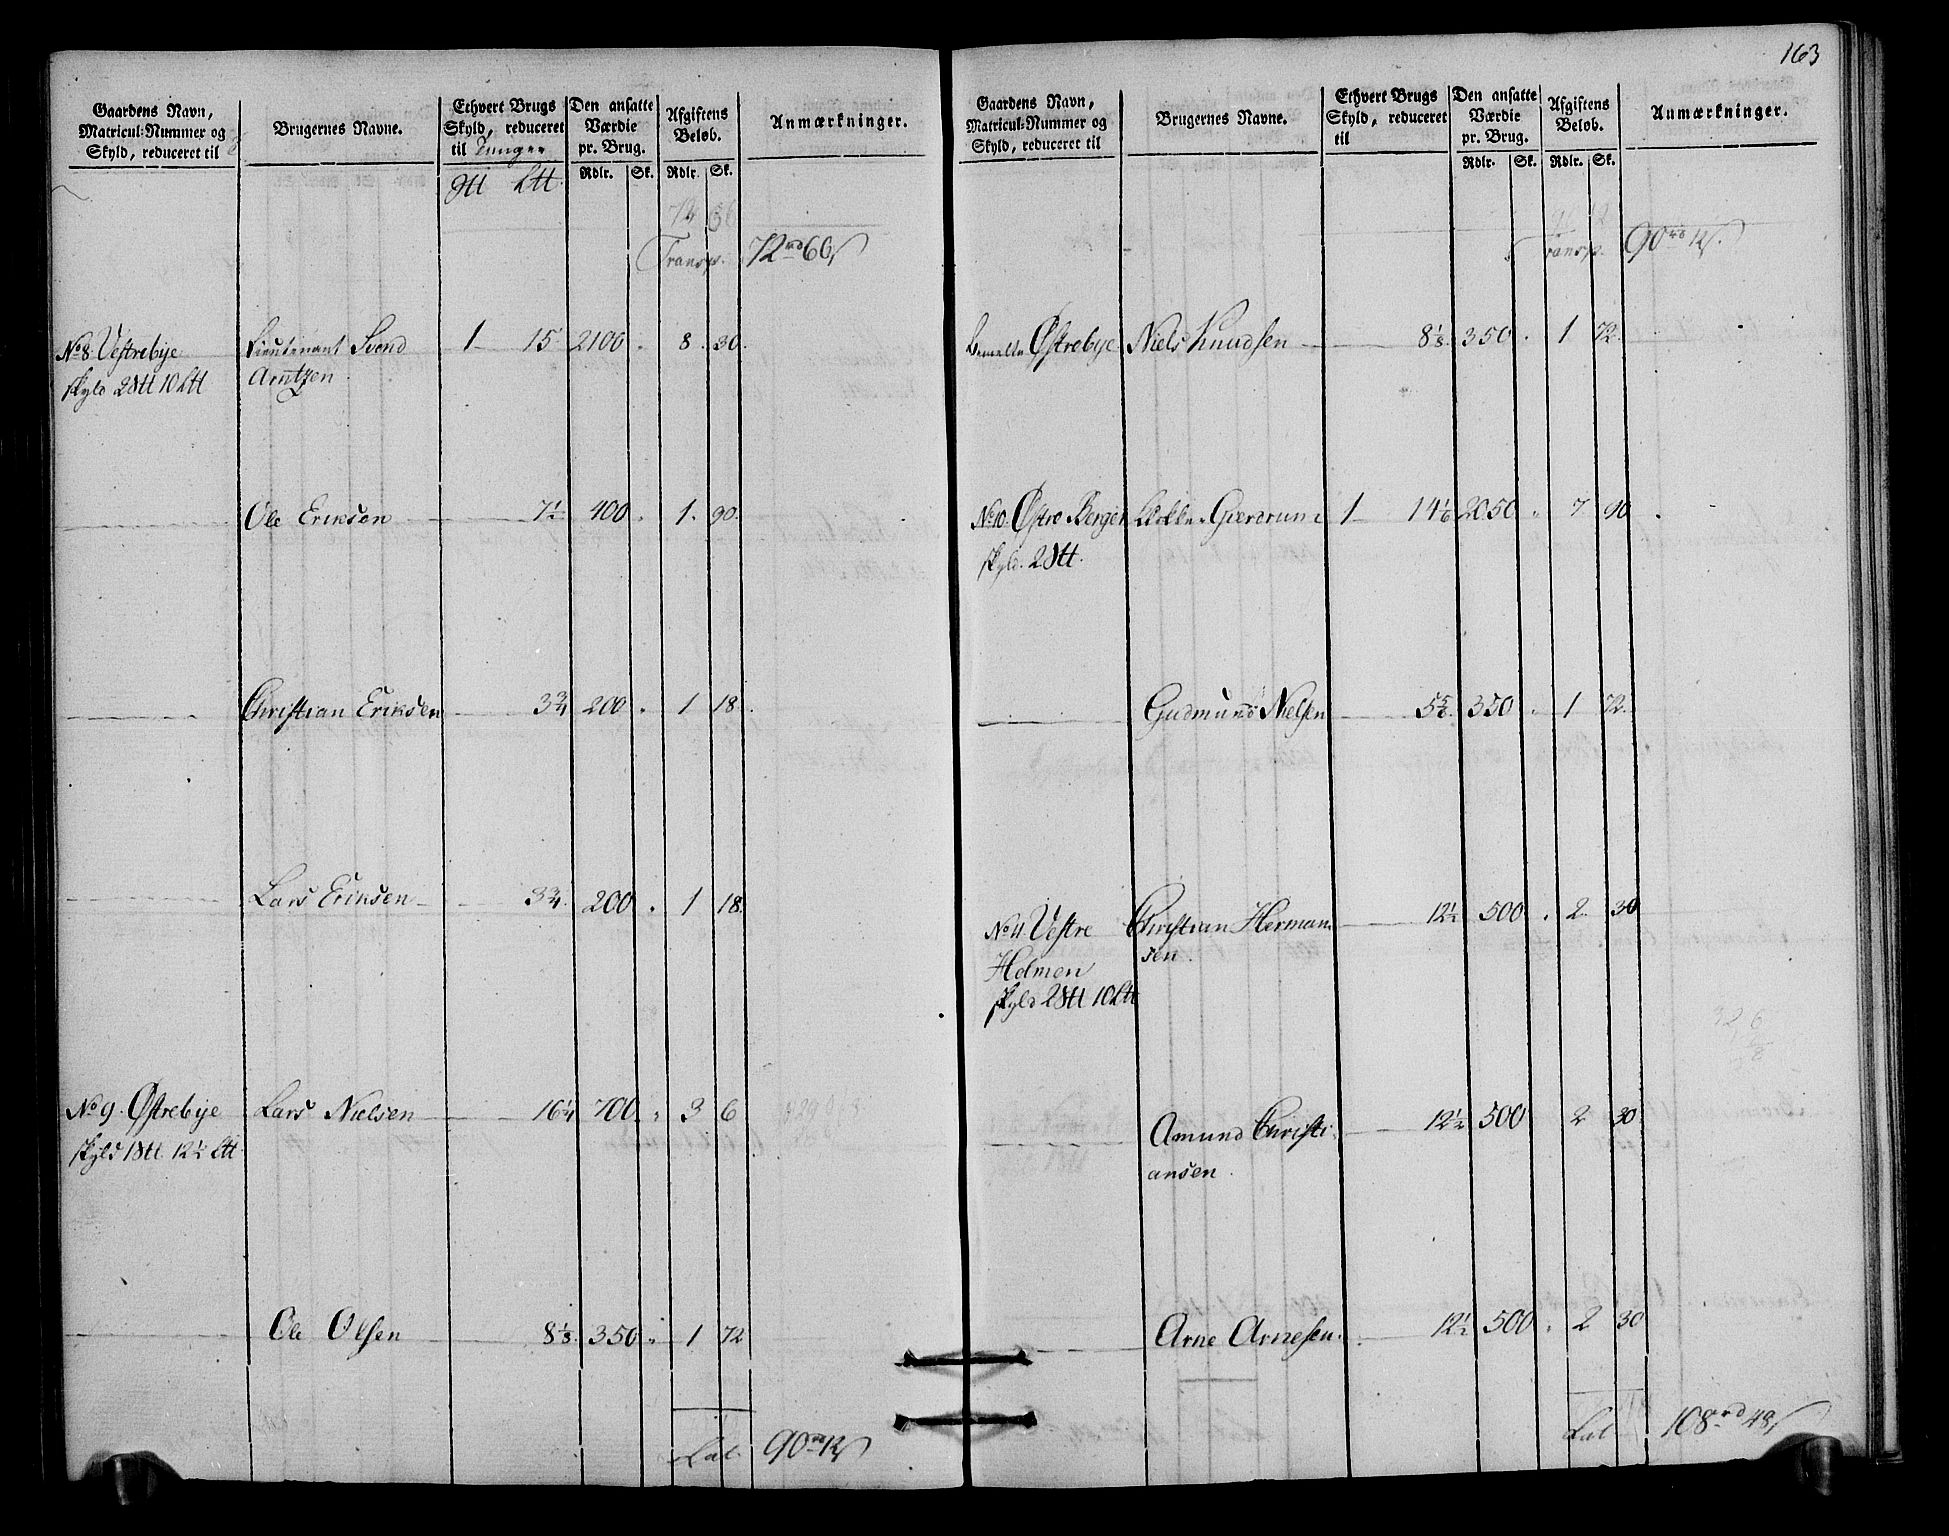 163
Gaardens Navn, Matricul-Nummer og Skyld, reduceret til
Brugernes Navne.
Ethvert Brugs Skyld, reduceret til Tunge
Den ansatte Værdie pr. Brug.
Afgiftens Beløb.
Anmærkninger.
Rdlr. Sk. Rdlr. Sk.
Transp. 72 rd 66 s
No 8 Vestrebye Lieutenant Svend 1 15 2100 8 30
skyld 2 10 Arntzen
Ole Eriksen 7½ 400 1 90
Christian Eriksen 3¾ 200 1 18
Lars Eriksen 3¾ 200 1 18
No 9 Østrebye Lars Nielsen 16¼ 700 3 6
skyld 1 12½
Ole Olsen 8⅛ 350 1 72
Lat. 90 rd 12 s
Gaardens Navn, Matricul-Nummer og Skyld, reduceret til
Brugernes Navne.
Ethvert Brugs Skyld, reduceret til
Den ansatte Værdie pr. Brug.
Afgiftens Beløb.
Anmærkninger.
Rdlr. Sk. Rdlr. Sk.
Transp. 90 rd 12 s
Bemelte Østrebye Niels Knudsen 8⅛ 350 1 72
No 10 Østre Berger Gierdrum 1 14⅙ 2050 7 90
skyld 2
Gudmund Nielsen 5⅚ 350 1 72
No 11 Vestre Christian Herman 12½ 500 2 30
Holmen sen
skyld 2 10
Amund Christi 12½ 500 2 30
ansen
Arne Arnesen 12½ 500 2 30
Lat. 108 rd 48 s